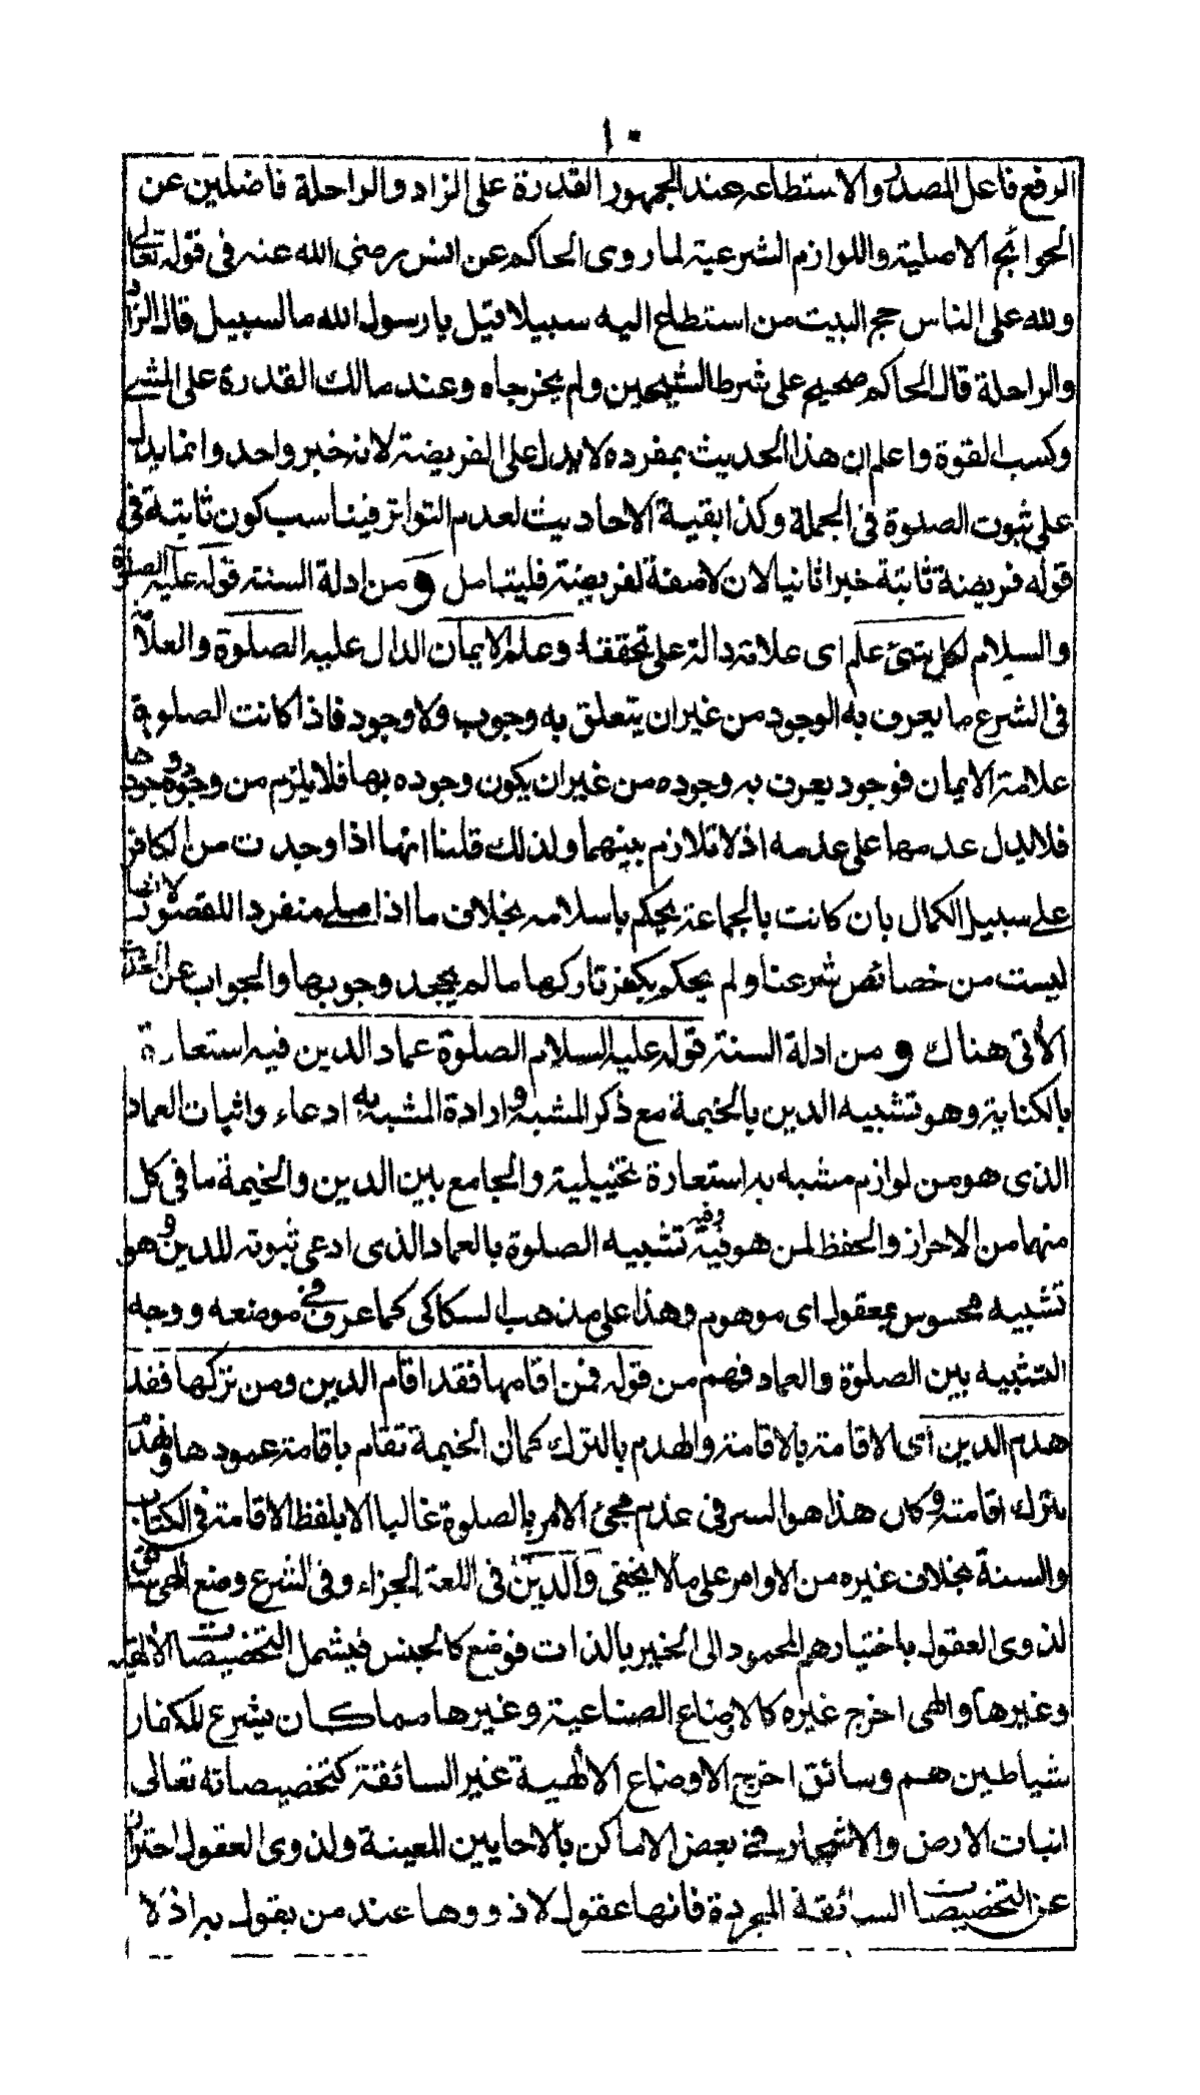 ١٠
الرفع فاعل المصدر والاستطاعه عند الجمهور القدرة على الزاد والراحلة فاضلين عن
الحوائج الاصلية واللوازم الشرعية لما روى الحاكم عن انس رضى الله عنه فى قوله تعالى
ولله على الناس حج البيت من استطاع اليه سبيلا قيل يا رسول الله ما السبيل قال الزاد
والراحلة قال الحاكم صحيح على شرط الشيخين ولم يخرجاه وعند مالك القدرة على المشى
وكسب القوة واعلم ان هذا الحديث بمفرده لا يدل على الفريضة لانه خبر واحد وانما يدل
على ثبوت الصلوة فى الجملة وكذا بقية الاحاديث لعدم التواتر فيناسب كون ثابتة فى
قوله فريضة ثابتة خبرا ثانيا لان لا صفة لفريضة فليتامل و من ادلة السنة قوله عليه الصلوة
والسلام لكل شئ علم اى علامة دالة على تحققه وعلم الايمان الدال عليه الصلوة والعلامة
فى الشرع ما يعرف به الوجود من غير ان يتعلق به وجوب ولا وجود فاذا كانت الصلوة
علامة الايمان فوجود يعرف به وجوده من غير ان يكون وجوده بها فلا يلزم من وجوده وجودها
فلا ليدل عدمها على عدمه اذ لا تلازم بينهما ولذلك قلنا انها اذا وجدت من الكافر
على سبيل الكمال بان كانت بالجماعة يحكم باسلامه بخلاف ما اذا صلى منفردا لانها
ليست من خصائص شرعنا ولم يحكم بكفر تاركها ما لم يجحد وجوبها والجواب عن
الأتى هناك و من ادلة السنة قوله عليه السلام الصلوة عماد الدين فيه استعارة
بالكناية وهو تشبيه الدين بالخيمة مع ذكر المشبه وارادة المشبه به ادعاء واثبات العماد
الذى هو من لوازم مشبه به استعارة تخييلية والجامع بين الدين والخيمة ما فى كل
منها من الاحراز والحفظ لمن هو فيه وفيه تشبيه الصلوة بالعماد الذى ادعى ثبوته للدين وهو
تشبيه محسوس بمعقول اى موهوم وهذا على مذهب السكاكى كما عرف فى موضعه ووجه
التشبيه بين الصلوة والعماد فهم من قوله فمن اقامها فقد اقام الدين ومن تركها فقد
هدم الدين اى الاقامة بالاقامة والهدم بالترك كما ان الخيمة تقام باقامة عمودها وتهدم
بترك اقامته وكان هذا هو السر فى عدم مجئ الامر بالصلوة غالبا الا بلفظ الاقامة فى الكتاب
والسنة بخلاف غيره من الاوامر على ما لا يخفى والدين فى اللغة الجزاء وفى الشرع وضع الهى سائق
لذوى العقول باختيارهم المحمود الى الخير بالذات فوضع كالجنس فيشمل التخصيصات الألهية
وغيرها والهى اخرج غيره كالاوضاع الصناعية وغيرها مما كان يشرع للكفار
شياطين هم وسائق اخرج الاوضاع الألهية غير السائقة كتخصيصاته تعالى
انبات الارض والاشجار فى بعض الاماكن بالاحايين المعينة ولذوى العقول احترازا
عن التخصيصات السائقة المجردة فانها عقول لا ذووها عند من يقول به اذ لا